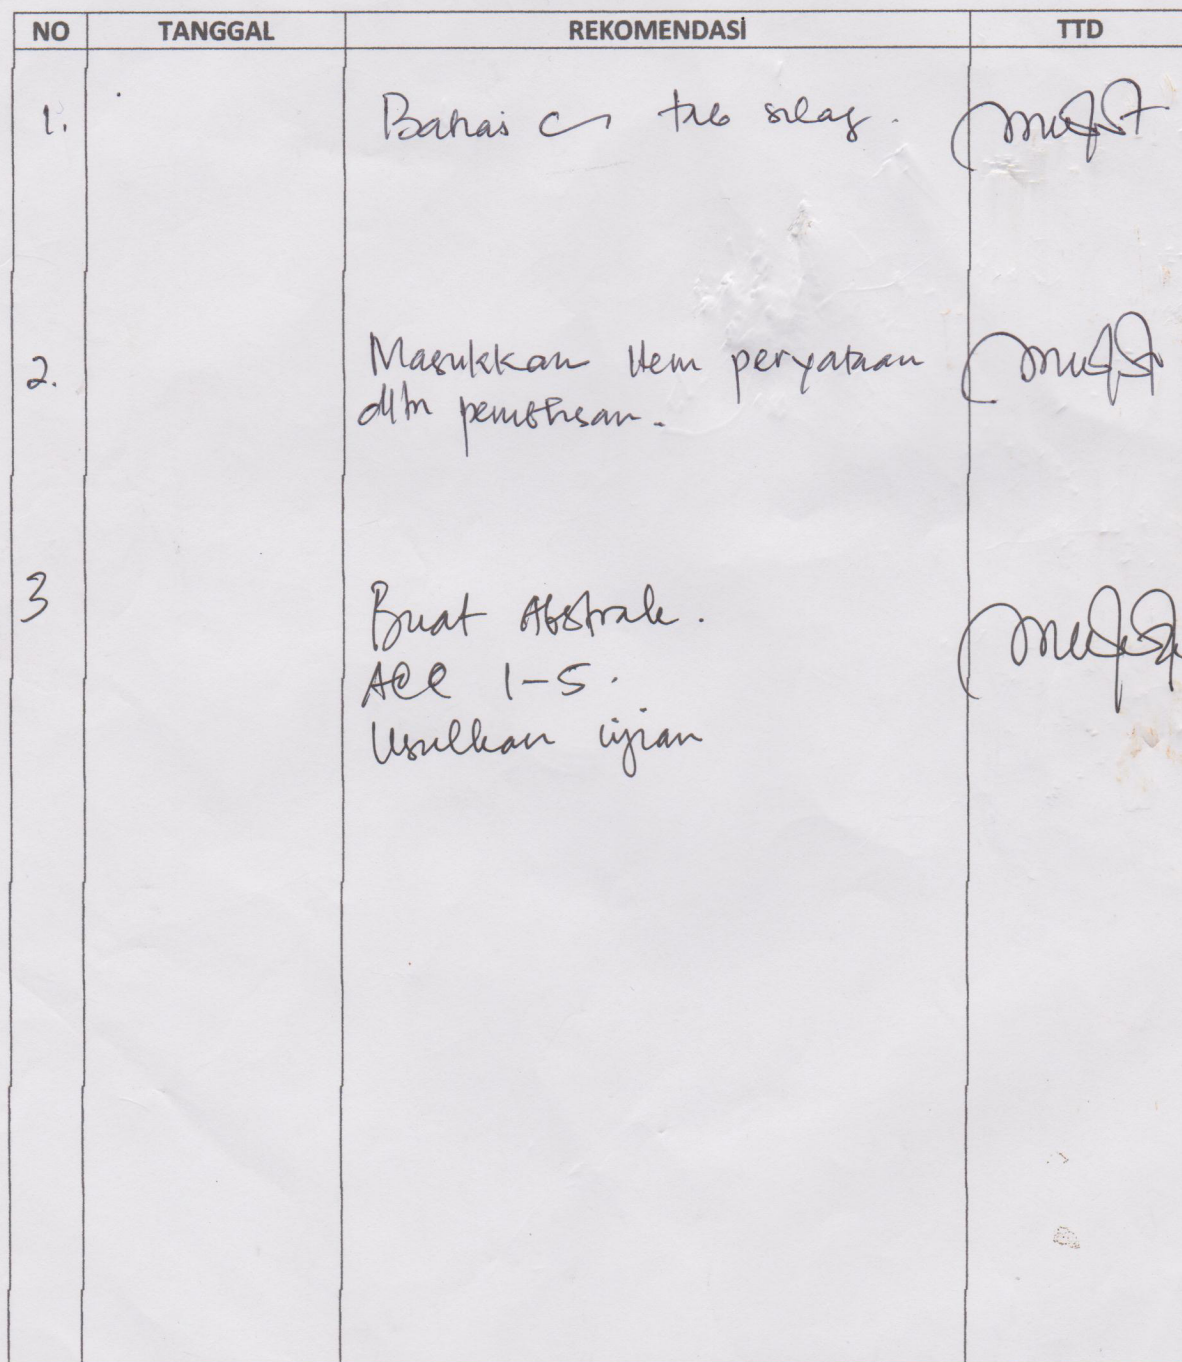 NO TANGGAL REKOMENDASİ TTD
1. Bahas tab silag.
2. Masukkan Item peryataan
dlm penulisan.
3 Buat Abstrak.
ACC 1-5.
Usulkan ujian